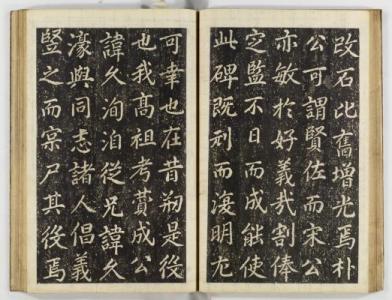 改石比舊增光焉朴
公可謂賢佐而宋公
亦敏於好義哉割俸
定監不日而成能使
此碑既刓而復明尤
可幸也在昔朔是役
也我髙祖考蕡成公
諱久洵洎從兄諱久
濠與同志諸人倡義
豎之而宗尸其後焉